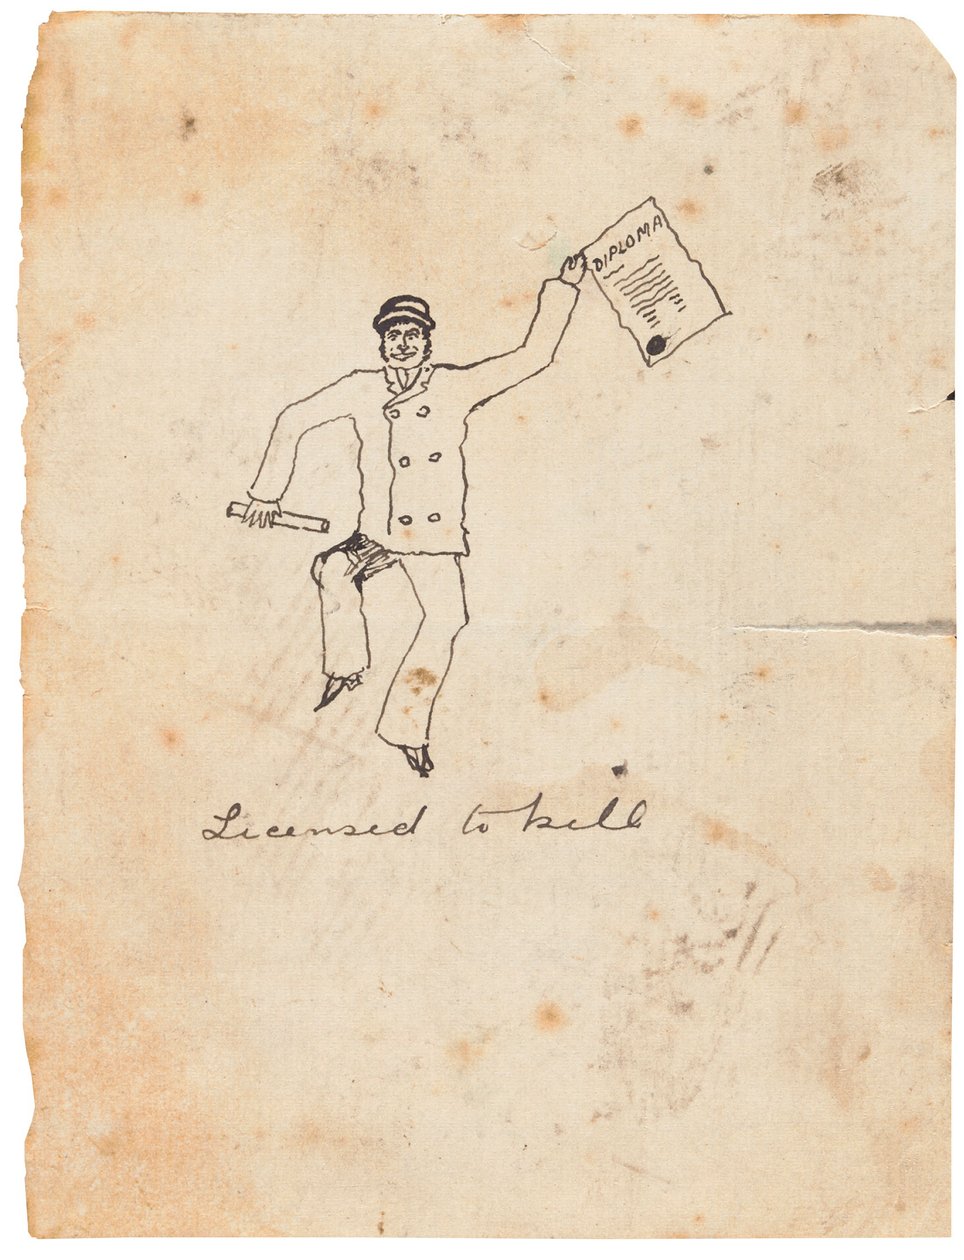 DIPLOMA
Licensed to kill